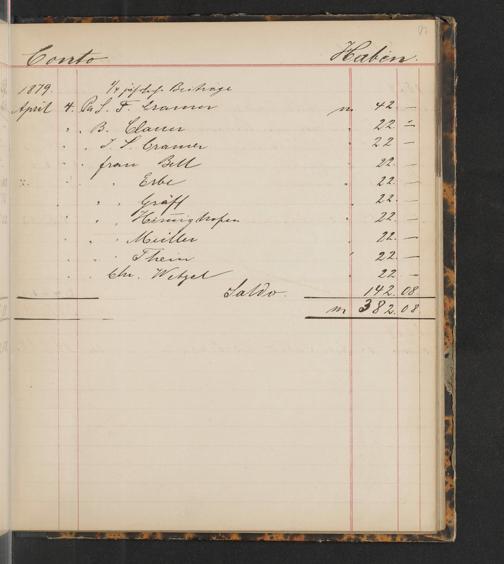 Conto Haben.
1879 1/4 jährl. Beiträge
April 4. Pr S. F. Cramer M. 42 —
" " B. Clauer " 22 —
" " J. S. Cramer 22 —
" " Frau Bell " 22. —
" " " Erbe " 22. —
" " " Gräff " 22. —
" " " " 22. —
" " " Müller 22. —
" " " Thein " 22. —
" " Chr. Wetzel 22 —
Saldo. 142.08
M. 382.08